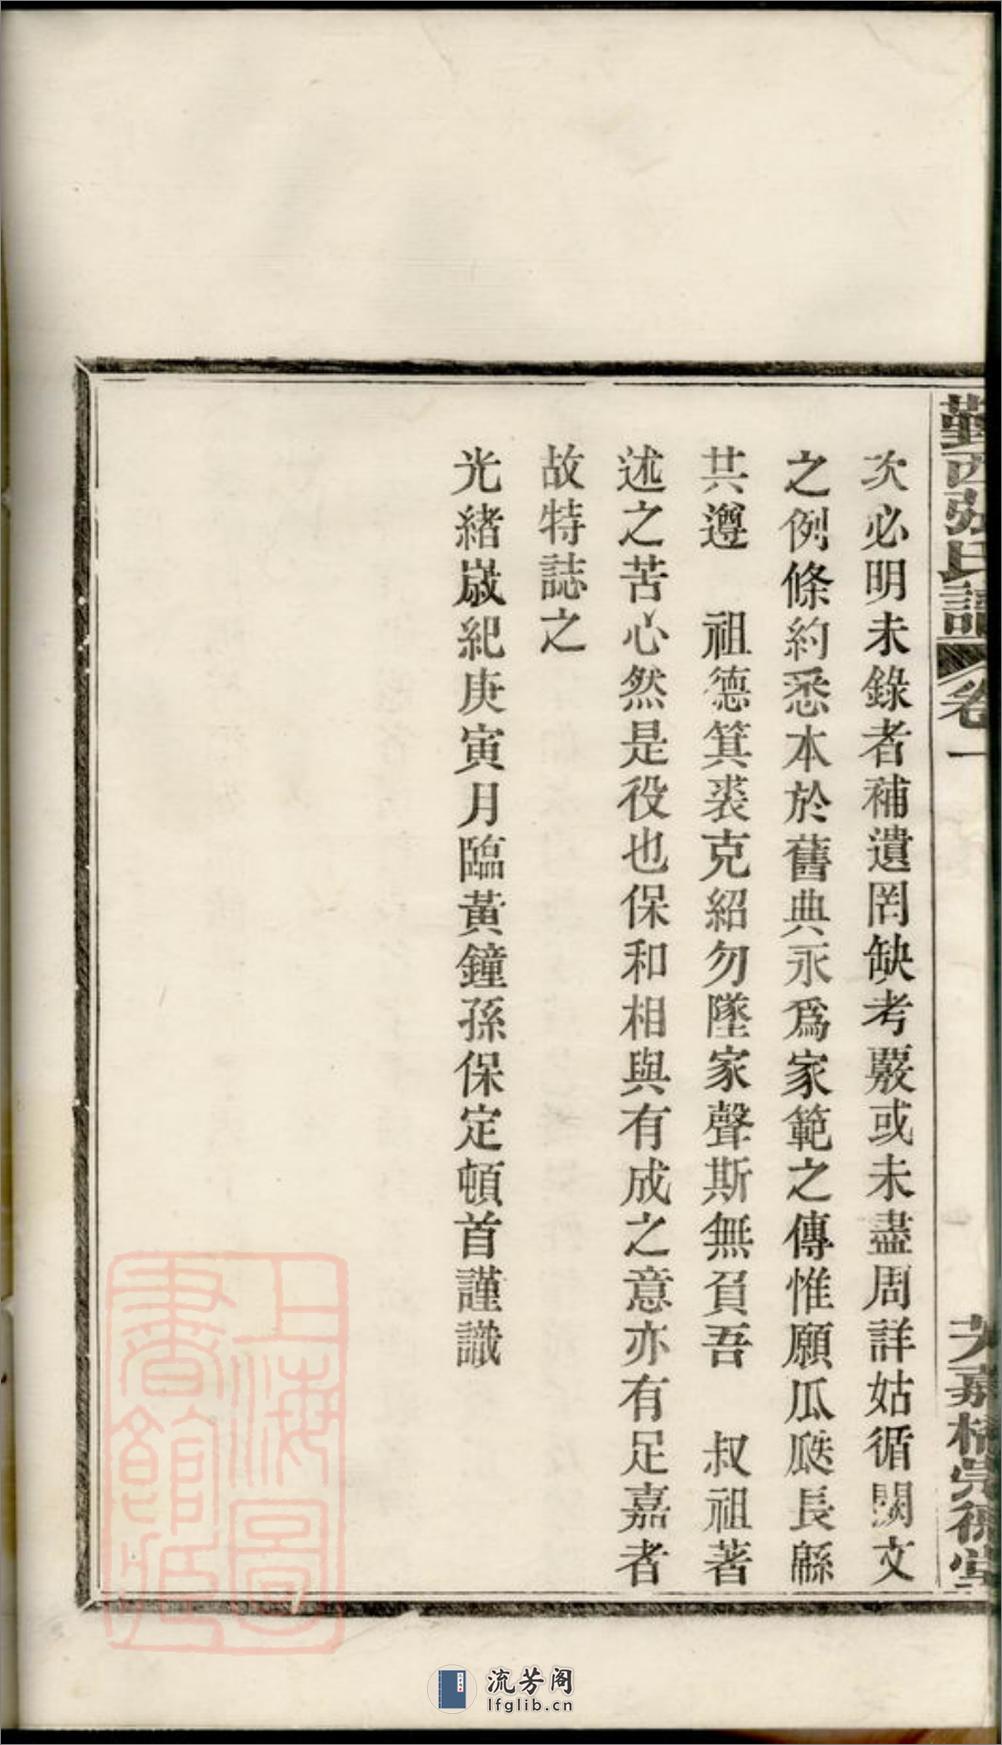 西張氏譜 卷一
次必明未錄者補遺罔缺考覈或未盡周詳姑循闕文
之例條約悉本於舊典永爲家範之傳惟願瓜瓞長緜
共遵　祖德箕裘克紹勿墜家聲斯無負吾　叔祖著
述之苦心然是役也保和相與有成之意亦有足嘉者
故特誌之
光緒歲紀庚寅月臨黃鐘孫保定頓首謹識
上海圖
書館藏
流芳阁
lfglib.cn